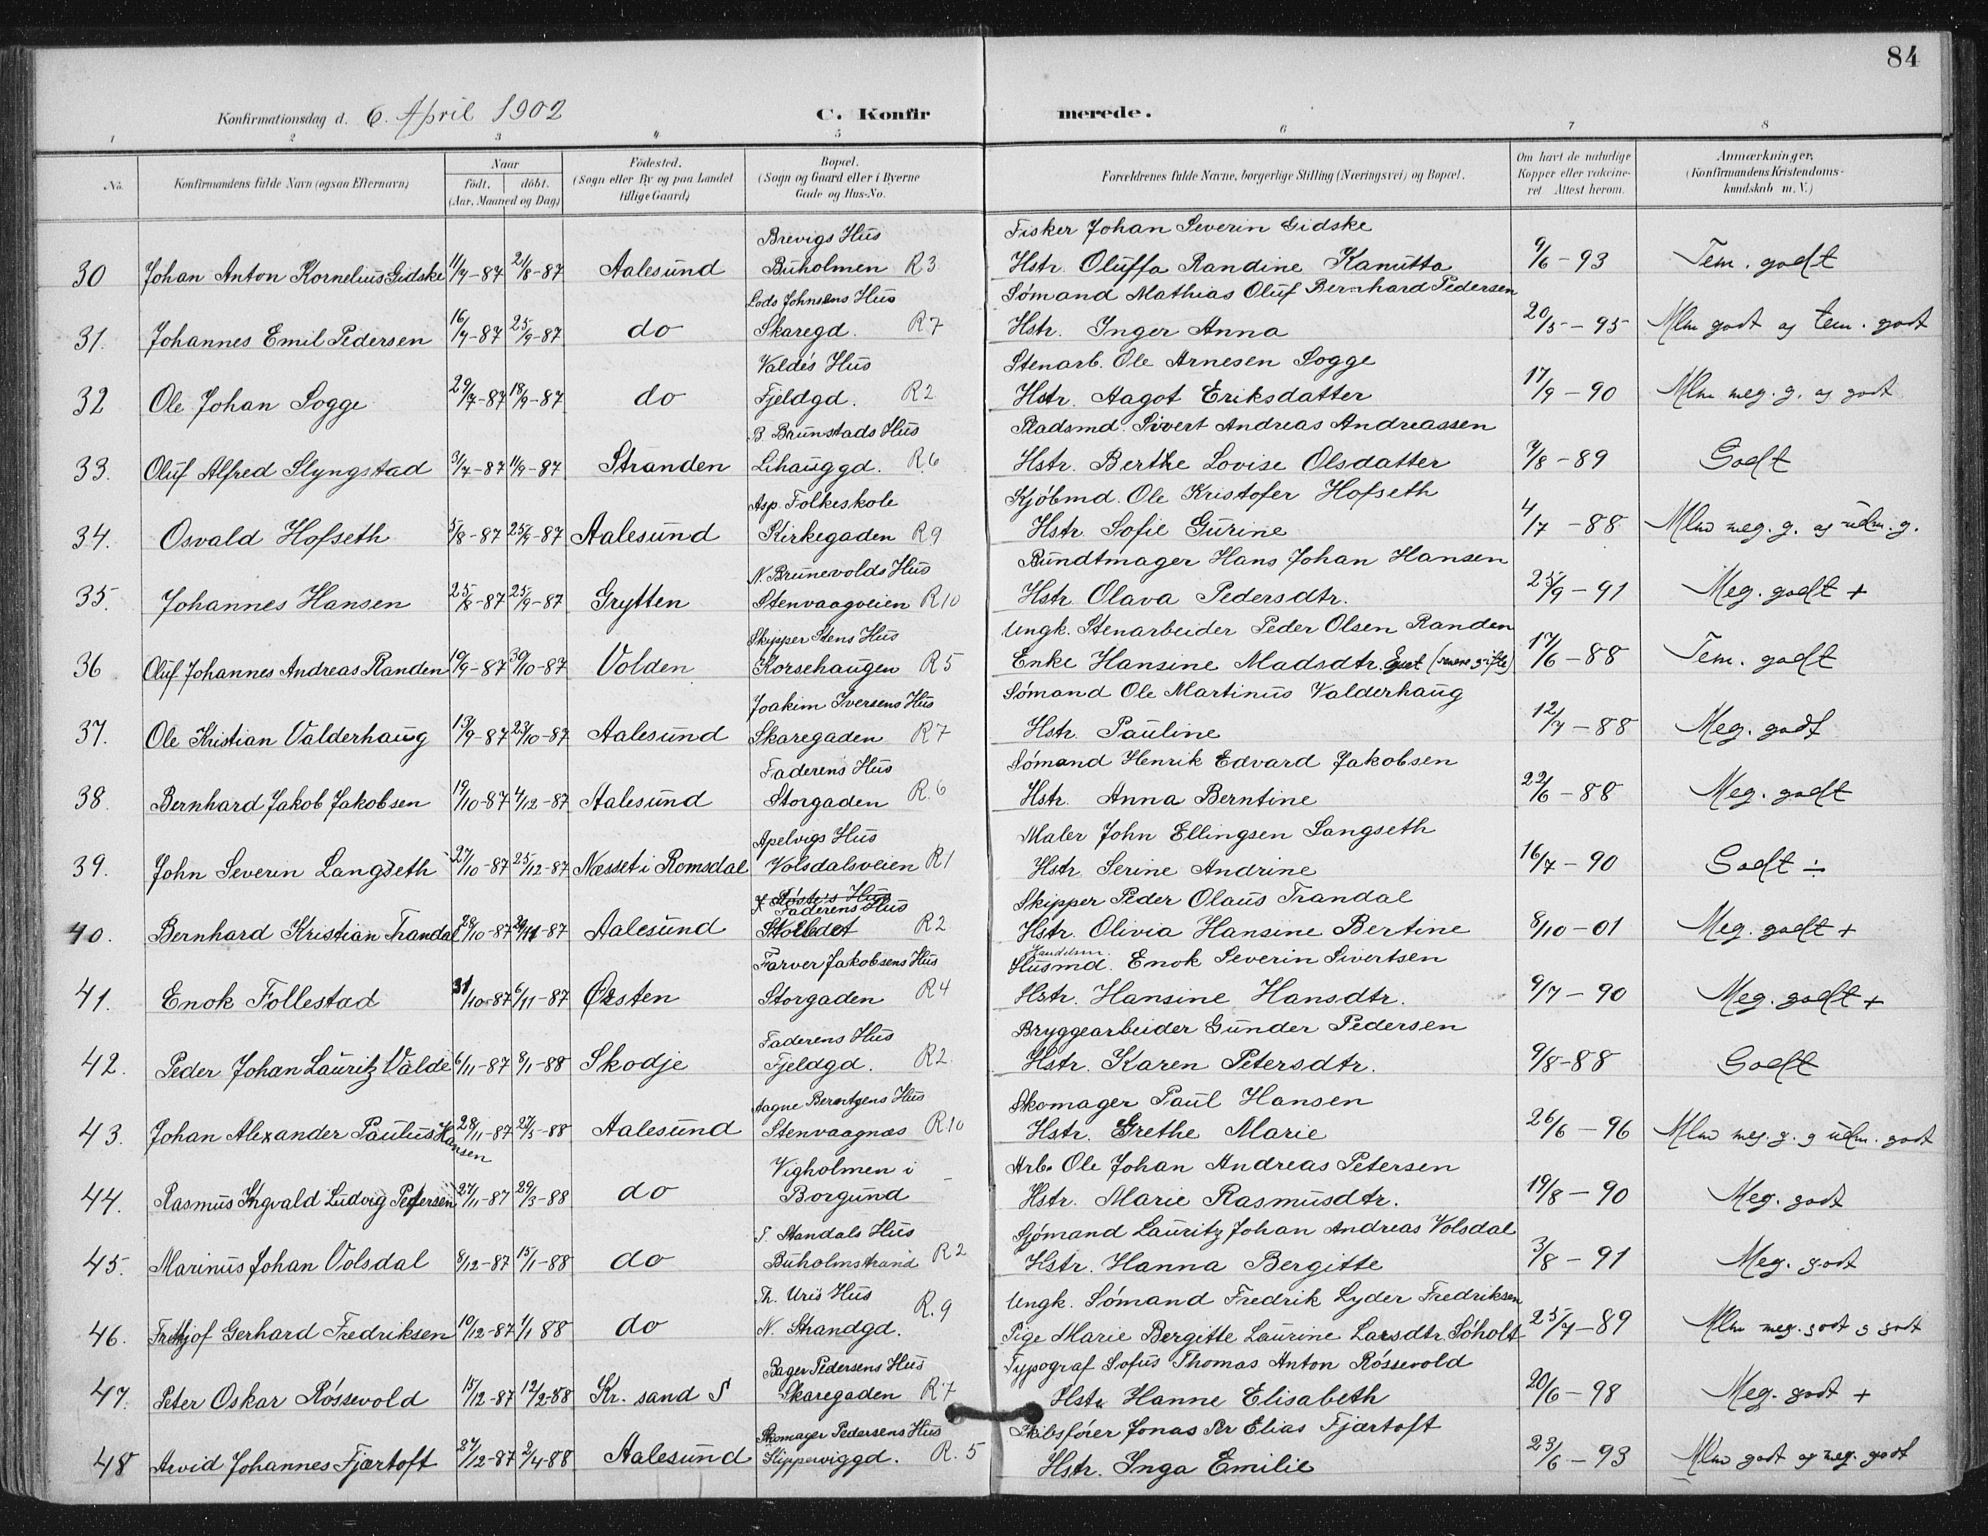 84
Konfirmationsdag d. 6. April 1902
C. Konfirmerede.
1 2 3 4 5 6 7 8
No. Konfirmandens fulde Navn (ogsaa Efternavn) Naar födt. döbt. (Aar, Maaned og Dag) Födested. (Sogn eller By og paa Landet tillige Gaard) Bopæl. (Sogn og Gaard eller i Byerne Gade og Hus-No. Forældrenes fulde Navne, borgerlige Stilling (Næringsvei) og Bopæl. Om havt de naturlige Kopper eller vakcineret Attest herom. Anmærkninger. (Konfirmandens Kristendomskundskab m. V.)
Brevigs Hus Fisker Johan Severin Gidske
30 Johan Anton Kornelius Gidske 11/7-87 21/8-87 Aalesund Buholmen R3 Hstr. Oluffa Randine Kanutta 9/6-93 Tem. godt
Lods Johnsens Hus Sømand Mathias Oluf Bernhard Pedersen
31. Johannes Emil Pedersen 16/7-87 25/9-87 do Skaregd. R7 Hstr. Inger Anna 20/5-95 Mlm godt og tem. godt
Valdes Hus Stenarb. Ole Arnesen Sogge
32 Ole Johan Sogge 29/7-87 18/9-87 do Fjeldgd. R2 Hstr. Aagot Eriksdatter 17/9-90 Mlm meg. g. og godt
B. Brunstads Hus Pladsmd. Sivert Andreas Andreassen
33. Oluf Alfred Slyngstad 31/7-87 11/9-87 Stranden Lihauggd. R.6 Hstr. Berthe Lovise Olsdatter /8-89 Godt
Asp. Folkeskole Kjøbmd. Ole Kristofer Hofseth
34. Osvald Hofseth 5/8-87 25/9-87 Aalesund Kirkegaden R9 Hstr. Sofie Gurine 4/7-88 Mlm meg. g. og udm. g.
N. Brunevolds Hus Bundtmager Hans Johan Hansen
35. Johannes Hansen 25/8-87 25/9-87 Grytten Stenvaagveien R10 Hstr. Olava Pedersdtr. 25/9-91 Meg. godt +
Skipper Stens Hus Ungk. Stenarbeider Peder Olsen Randen
36 Oluf Johannes Andreas Randen 10/9-87 30/10-87 Volden Korsehaugen R5 Enke Hansine Madsdtr. (senere gifte) 17/6-88 Tem. godt
Joakim Iversens Hus Sømand Ole Martinus Valderhaug
37. Ole Kristian Valderhaug 13/9-87 23/10-87 Aalesund Skaregaden R7 Hstr. Pauline 12/7-88 Meg. godt
Faderens Hus Sømand Henrik Edvard Jakobsen
38. Bernhard Jakob Jakobsen 19/10-87 4/12-87 Aalesund Storgaden R.6 Hstr. Anna Berntine 22/6-88 Meg. godt
Apelvigs Hus Maler John Ellingsen Langseth
39. John Severin Langseth 27/10-87 25/12-87 Næsset i Romsdal Volsdalsveien R1 Hstr. Serine Andrine 16/7-90 Godt ÷
Faderens Hus Skipper Peder Olaus Trandal
40. Bernhard Kristian Trandal 28/10-87 Aalesund R2 Hstr. Olivia Hansine Bertine 8/10-01 Meg. godt +
Farver Jakobsens Hus Husmd. Enok Severin Sivertsen
41. Enok Follestad 31/10-87 6/11-87 Ørsten Storgaden R4 Hstr. Hansine Hansdtr. 9/7-90 Meg. godt +
Faderens Hus Bryggearbeider Gunder Pedersen
42. Peder Johan Lauritz Valde 6/11-87 8/1-88 Skodje Fjeldgd. R2 Hstr. Karen Petersdtr. 9/8-88 Godt
Aagne Berntzens Hus Skomager Paul Hansen
43. Johan Alexander Paulus Hansen 28/11-87 27/3-88 Aalesund Stenvaagnæs R10 Hstr. Grethe Marie 26/6-96 Mlm meg. g. g udm. godt
Vigholmen i Arb. Ole Johan Andreas Petersen
44. Rasmus Ingvald Ludvig Petersen 27/11-87 29/3-88 do Borgund – Hstr. Marie Rasmusdtr. 19/8-90 Meg. godt
S. Standals Hus Sjømand Lauritz Johan Andreas Volsdal
45. Marinus Johan Volsdal 8/12-87 15/1-88 do Buholmstrand R2 Hstr. Hanna Bergitte 3/8-91 Meg. godt
Th. Uris Hus Ungk. Sømand Fredrik Lyder Fredriksen
46. Frithjof Gerhard Fredriksen 10/12-87 1/1 88 do N. Strandgd. R.9 Pige Marie Bergitte Laurine Larsdtr Søholt 25/7-89 Mlm meg. godt g godt
Bager Pedersens Hus Typograf Sofus Thomas Anton Røssevold
47. Peter Oskar Røssevold 15/12-87 12/2-88 Kr. sand S Skaregaden R7 Hstr Hanne Elisabeth 20/6-98 Meg. godt +
Skomager Pedersens Hus Skibsfører Jonas Per Elias Fjærtoft
48 Arvid Johannes Fjærtoft 27/12-87 2/4-88 Aalesund Skipperviggd. R. 5 Hstr. Inga Emilie 23/6-93 Mlm godt og meg. godt